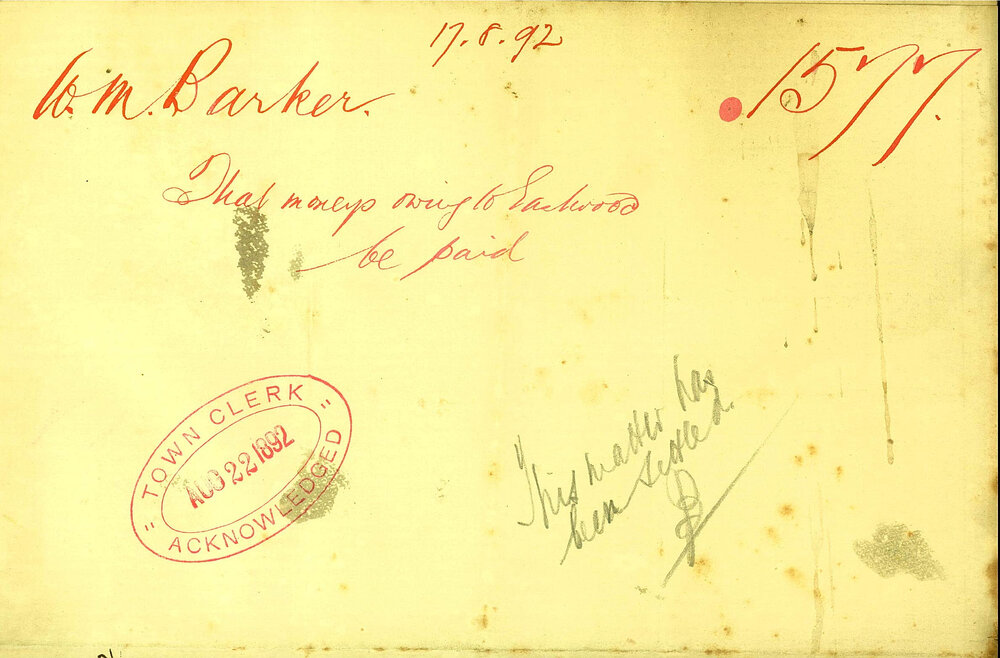 17.8.92
W. M. Barker.
1577.
That moneys owing to Eastwood
be paid
" TOWN CLERK "
AUG 22 1892
ACKNOWLEDGED
This matter has
been settled.